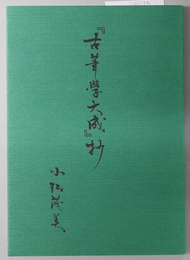 『古筆學大成』抄
小松茂美